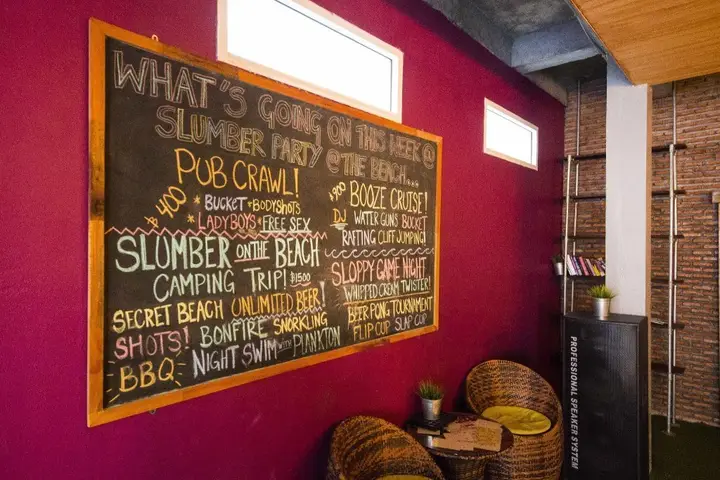 WHAT'S GOING ON THIS WEEK @
SLUMBER PARTY @ THE BEACH...
PUB CRAWL!
฿400 * BUCKET * BODYSHOTS
* LADYBOYS * FREE SEX
SLUMBER ON THE BEACH
CAMPING TRIP! ฿1500
SECRET BEACH UNLIMITED BEER!
SHOTS! BONFIRE SNORKLING
BBQ NIGHT SWIM WITH PLANKTON
฿900 BOOZE CRUISE!
DJ WATER GUNS BUCKET
RAFTING CLIFF JUMPING!
SLOPPY GAME NIGHT
WHIPPED CREAM TWISTER!
BEER PONG TOURNAMENT
FLIP CUP SLAP CUP
PROFESSIONAL SPEAKER SYSTEM